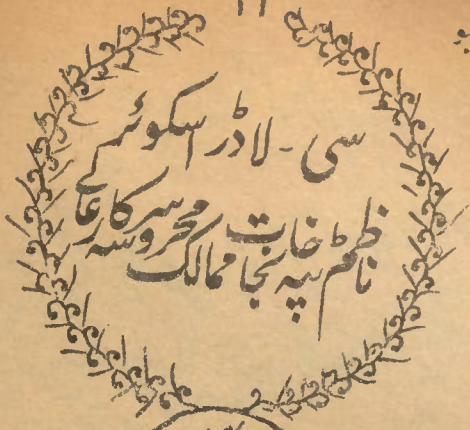 ۱۱
سی - لاڈر اسکوئر
ناظم ٹپہ خانجات ممالک محروسہ سرکار عالی